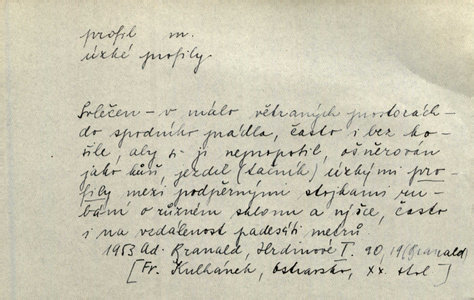 profil m.
úzké profily
Svlečen – v málo větraných prostorách –
do spodního prádla, často i bez ko-
šile, aby si ji nepropotil, ošněrován
jako kůň, jezdil (tahník) úzkými pro-
fily mezi podpěrnými stojkami ru-
bání o různém sklonu a výšce, často
i na vzdálenost padesáti metrů
1953 Ad. Branald, Hrdinové T. 90, 19 (Branald)
[Fr. Kulhánek, Ostravsko, XX. stol]